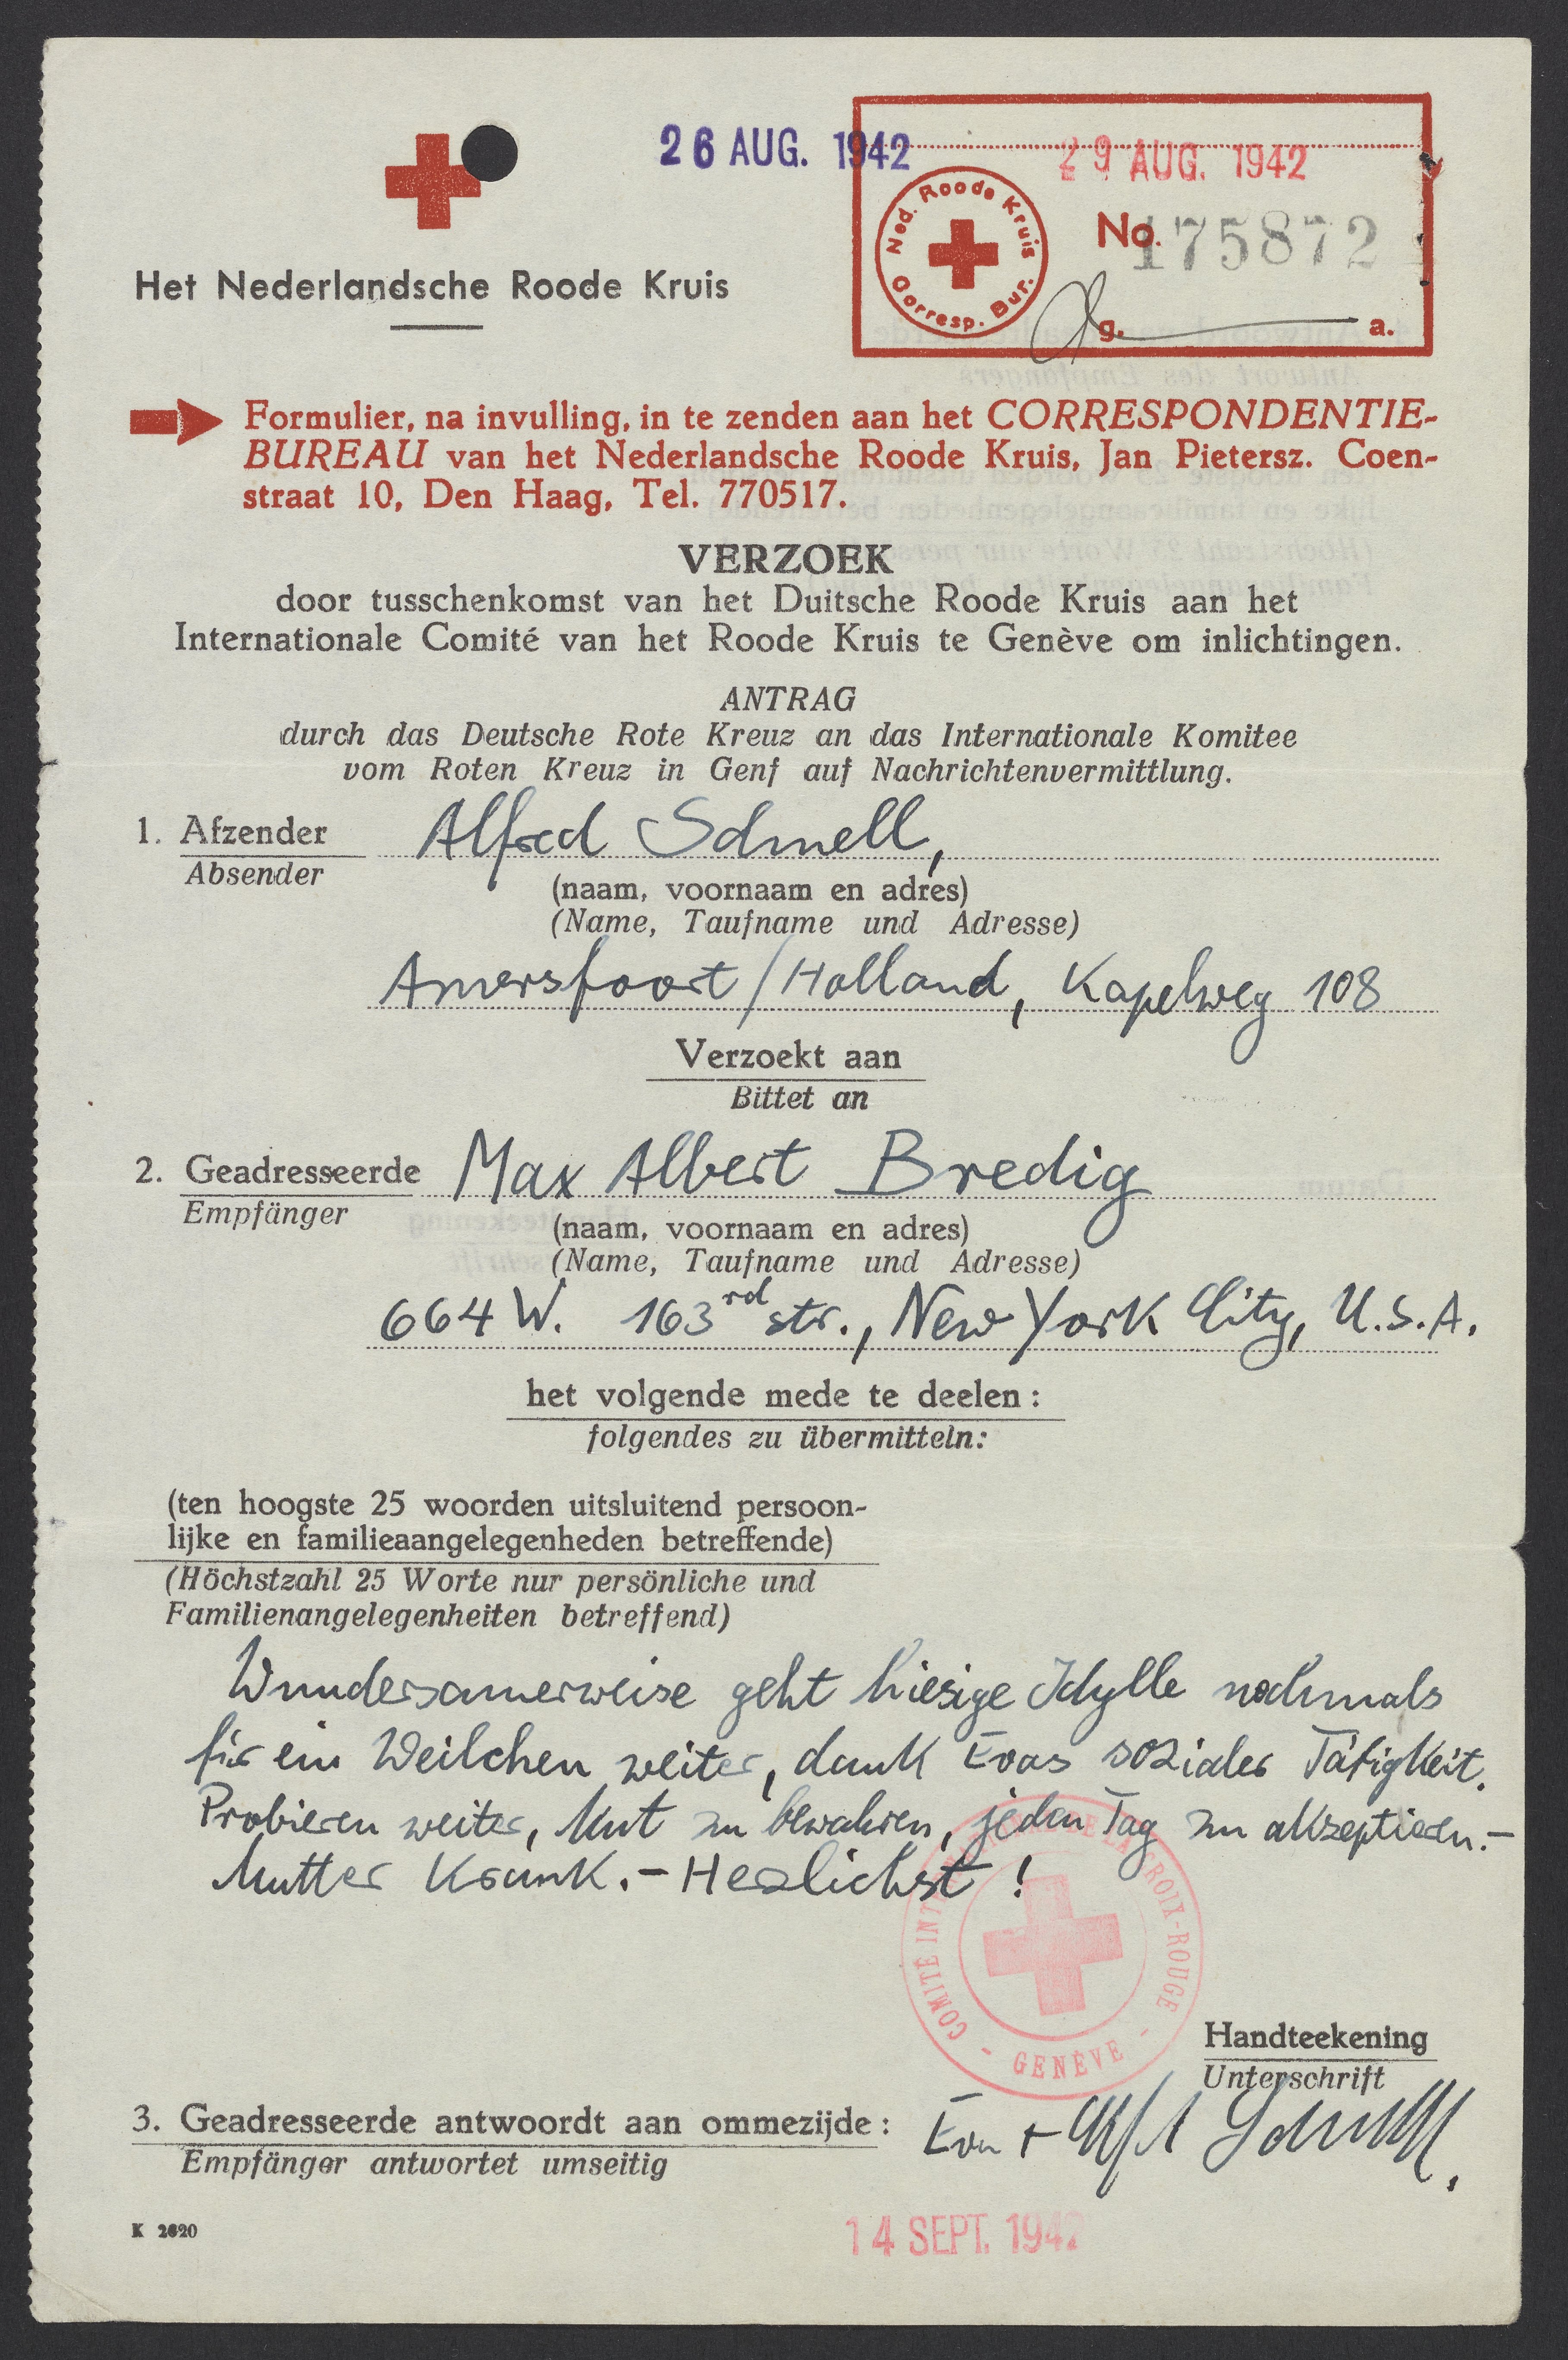 26 AUG. 1942
29 AUG. 1942
Ned. Roode Kruis
Corresp. Bur.
No. 175872
g. a.
Het Nederlandsche Roode Kruis
Formulier, na invulling, in te zenden aan het CORRESPONDENTIE-
BUREAU van het Nederlandsche Roode Kruis, Jan Pietersz. Coen-
straat 10, Den Haag, Tel. 770517.
VERZOEK
door tusschenkomst van het Duitsche Roode Kruis aan het
Internationale Comité van het Roode Kruis te Genève om inlichtingen.
ANTRAG
durch das Deutsche Rote Kreuz an das Internationale Komitee
vom Roten Kreuz in Genf auf Nachrichtenvermittlung.
1. Afzender Alfred Schnell,
Absender
(naam, voornaam en adres)
(Name, Taufname und Adresse)
Amersfoort/Holland, Kapelweg 108
Verzoekt aan
Bittet an
2. Geadresseerde Max Albert Bredig
Empfänger
(naam, voornaam en adres)
(Name, Taufname und Adresse)
664 W. 163rd str., New York City, U.S.A.
het volgende mede te deelen:
folgendes zu übermitteln:
(ten hoogste 25 woorden uitsluitend persoon-
lijke en familieaangelegenheden betreffende)
(Höchstzahl 25 Worte nur persönliche und
Familienangelegenheiten betreffend)
Wundersamerweise geht hiesige Idylle nochmals
für ein Weilchen weiter, dank Evas sozialer Tätigkeit.
Probieren weiter, Mut zu bewahren, jeden Tag zu akzeptieren.-
Mutter krank.- Herzlichst!
COMITÉ INTERNATIONAL DE LA CROIX-ROUGE
- GENÈVE -
Handteekening
Unterschrift
3. Geadresseerde antwoordt aan ommezijde:
Empfänger antwortet umseitig
Eva + Alfred Schnell.
K 2620
14 SEPT. 1942